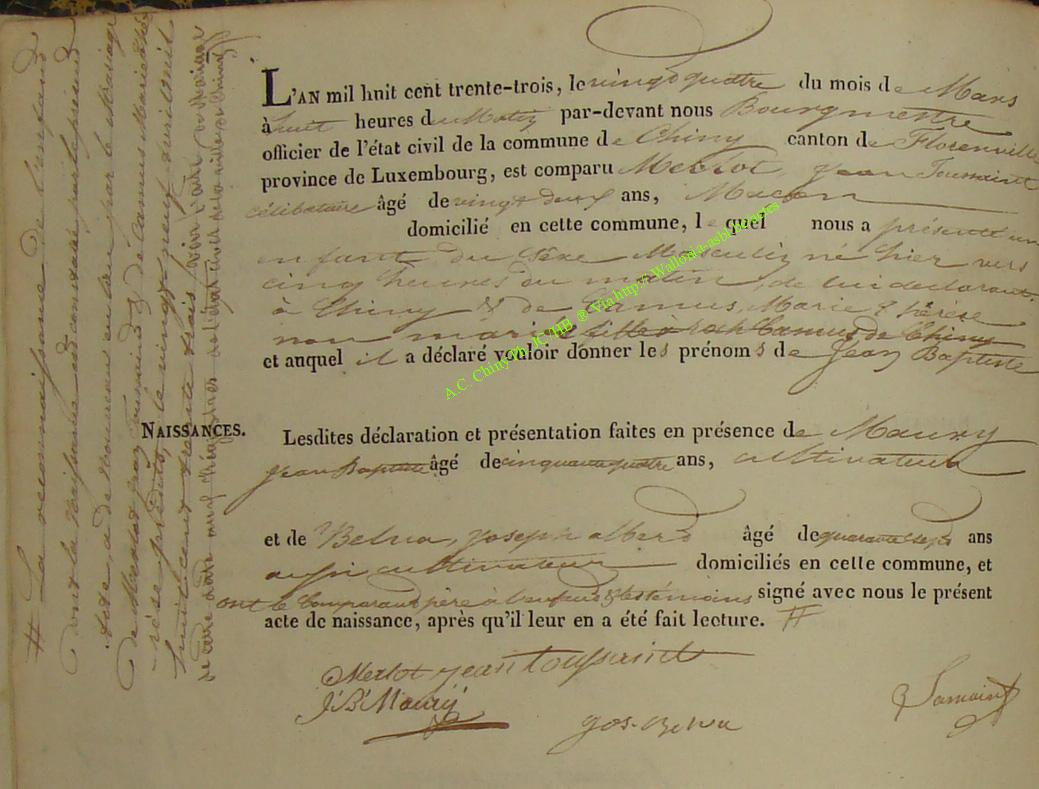 L'AN mil huit cent trente-trois, le vingt quatre du mois de Mars
à huit heures du Matin par-devant nous Bourgmestre
officier de l'état civil de la commune de Chiny canton de Florenville
province de Luxembourg, est comparu Merlot, Jean Toussaint
célibataire âgé de vingt deux ans, Maçon
domicilié en cette commune, lequel nous a présenté un
enfant du sexe Masculin né hier vers
cinq heures du matin, de lui déclarant
à Chiny & de Camus, Marie Thérèse
non mariée, fille de Camus de Chiny
et auquel il a déclaré vouloir donner les prénoms de Jean Baptiste
NAISSANCES.
Lesdites déclaration et présentation faites en présence de Maury
Jean Baptiste âgé de cinquante quatre ans, cultivateur
et de Belva, Joseph albert âgé de quarante sept ans
aussi cultivateur domiciliés en cette commune, et
ont le Comparant père à l'enfant & les témoins signé avec nous le présent
acte de naissance, après qu'il leur en a été fait lecture. #
Merlot jean toussaint
J B Maury
Jos. Belva
# La reconnaissance de l'enfant
dont la naissance est constatée par le présent
acte, a de nouveau eu lieu par le mariage
de Merlot jean Toussaint & de Camus Marie Thérèse
prédits, le vingt neuf avril mil
huit cent trente trois,
A.C. Chiny Ph. JC HB ® Via http:// Wallonia-asbl